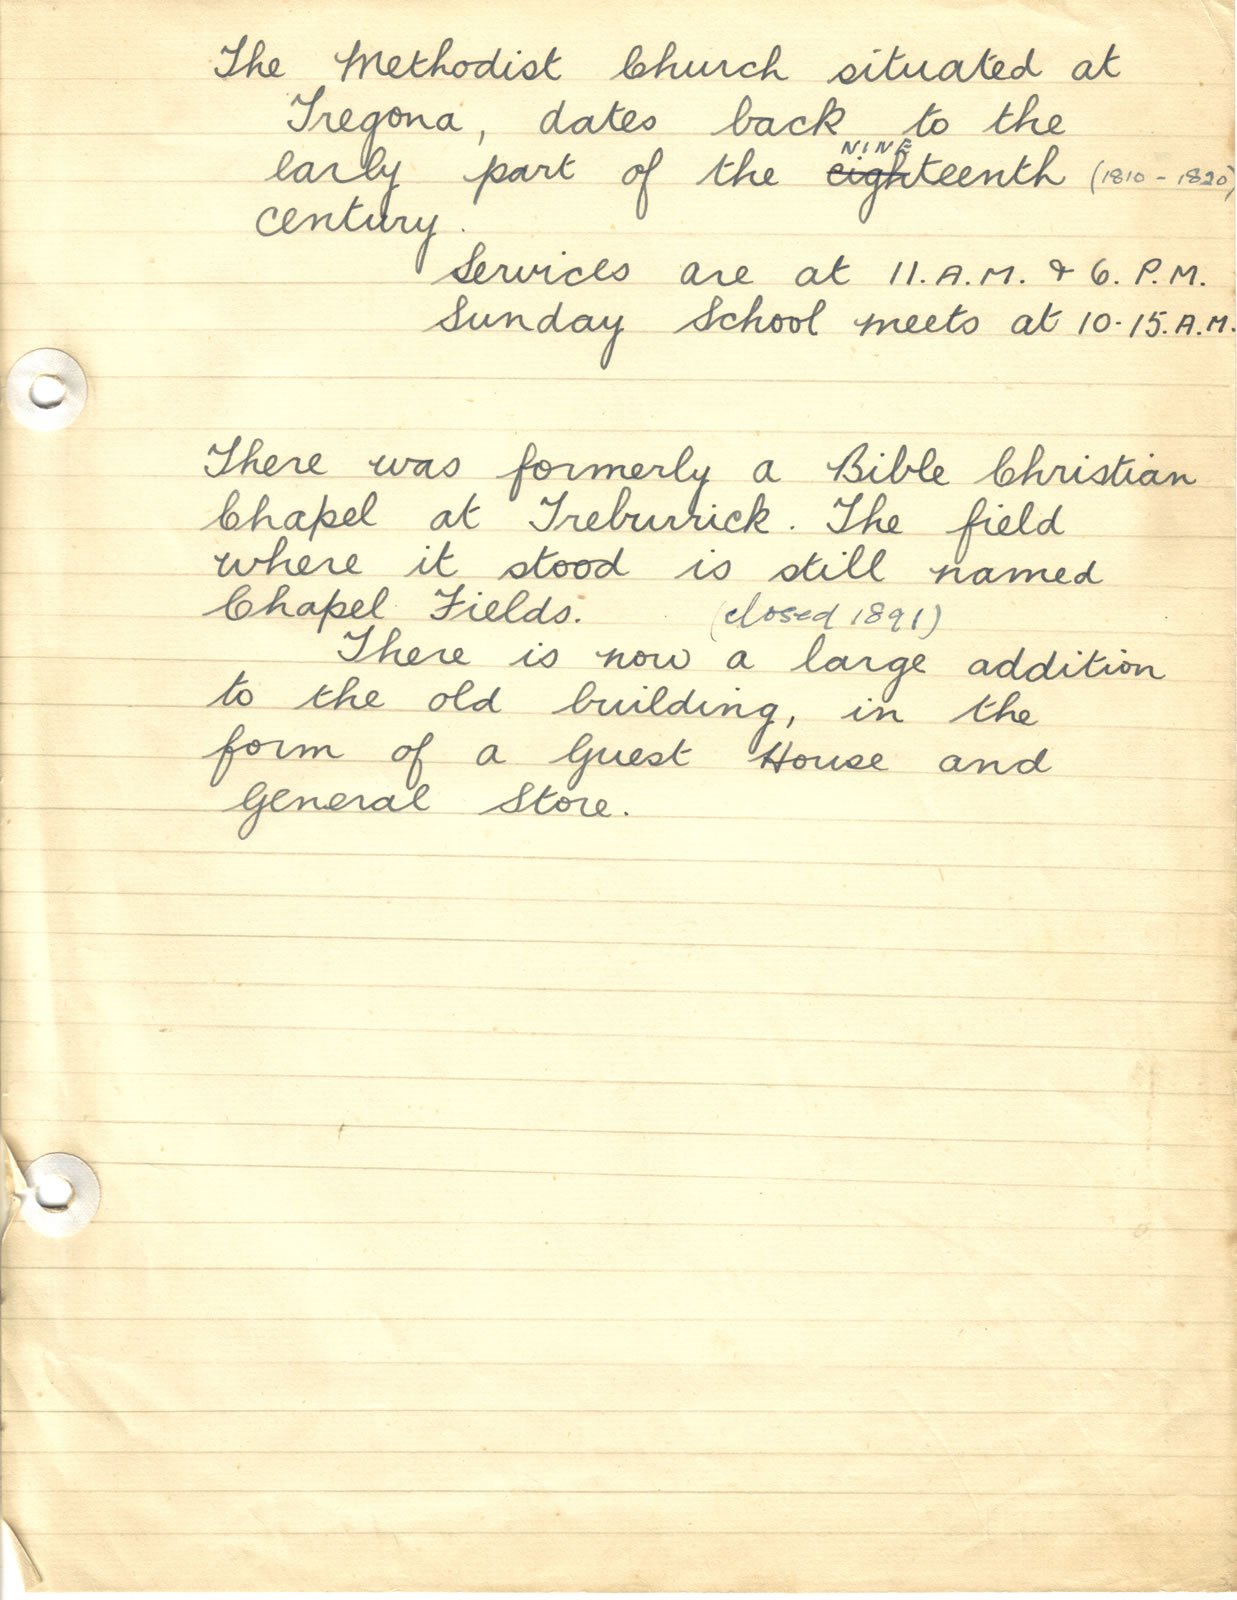 The Methodist Church situated at
Tregona, dates back to the
NINE
early part of the eighteenth (1810 - 1820)
century.
Services are at 11. A.M. & 6. P.M.
Sunday School meets at 10-15. A.M.
There was formerly a Bible Christian
Chapel at Treburrick. The field
where it stood is still named
Chapel Fields. (closed 1891)
There is now a large addition
to the old building, in the
form of a Guest House and
General Store.